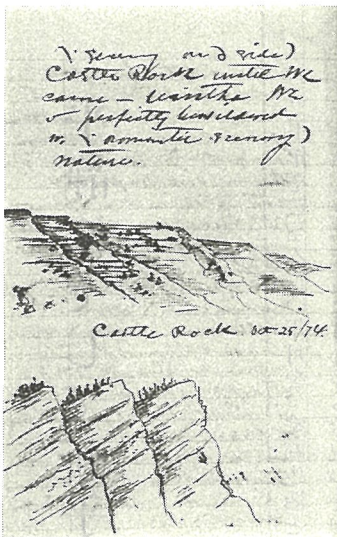 scenery on side)
Castle Rock until we
came – we
perfectly bewildered
romantic scenery)
nature.
Castle Rock Oct 25/74.